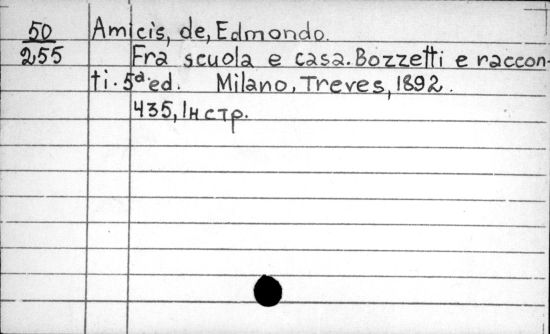 50 Amicis, de, Edmondo.
255 Fra scuola e casa. Bozzetti e raccon-
ti. 5ª ed. Milano, Treves, 1892.
435, 1н стр.